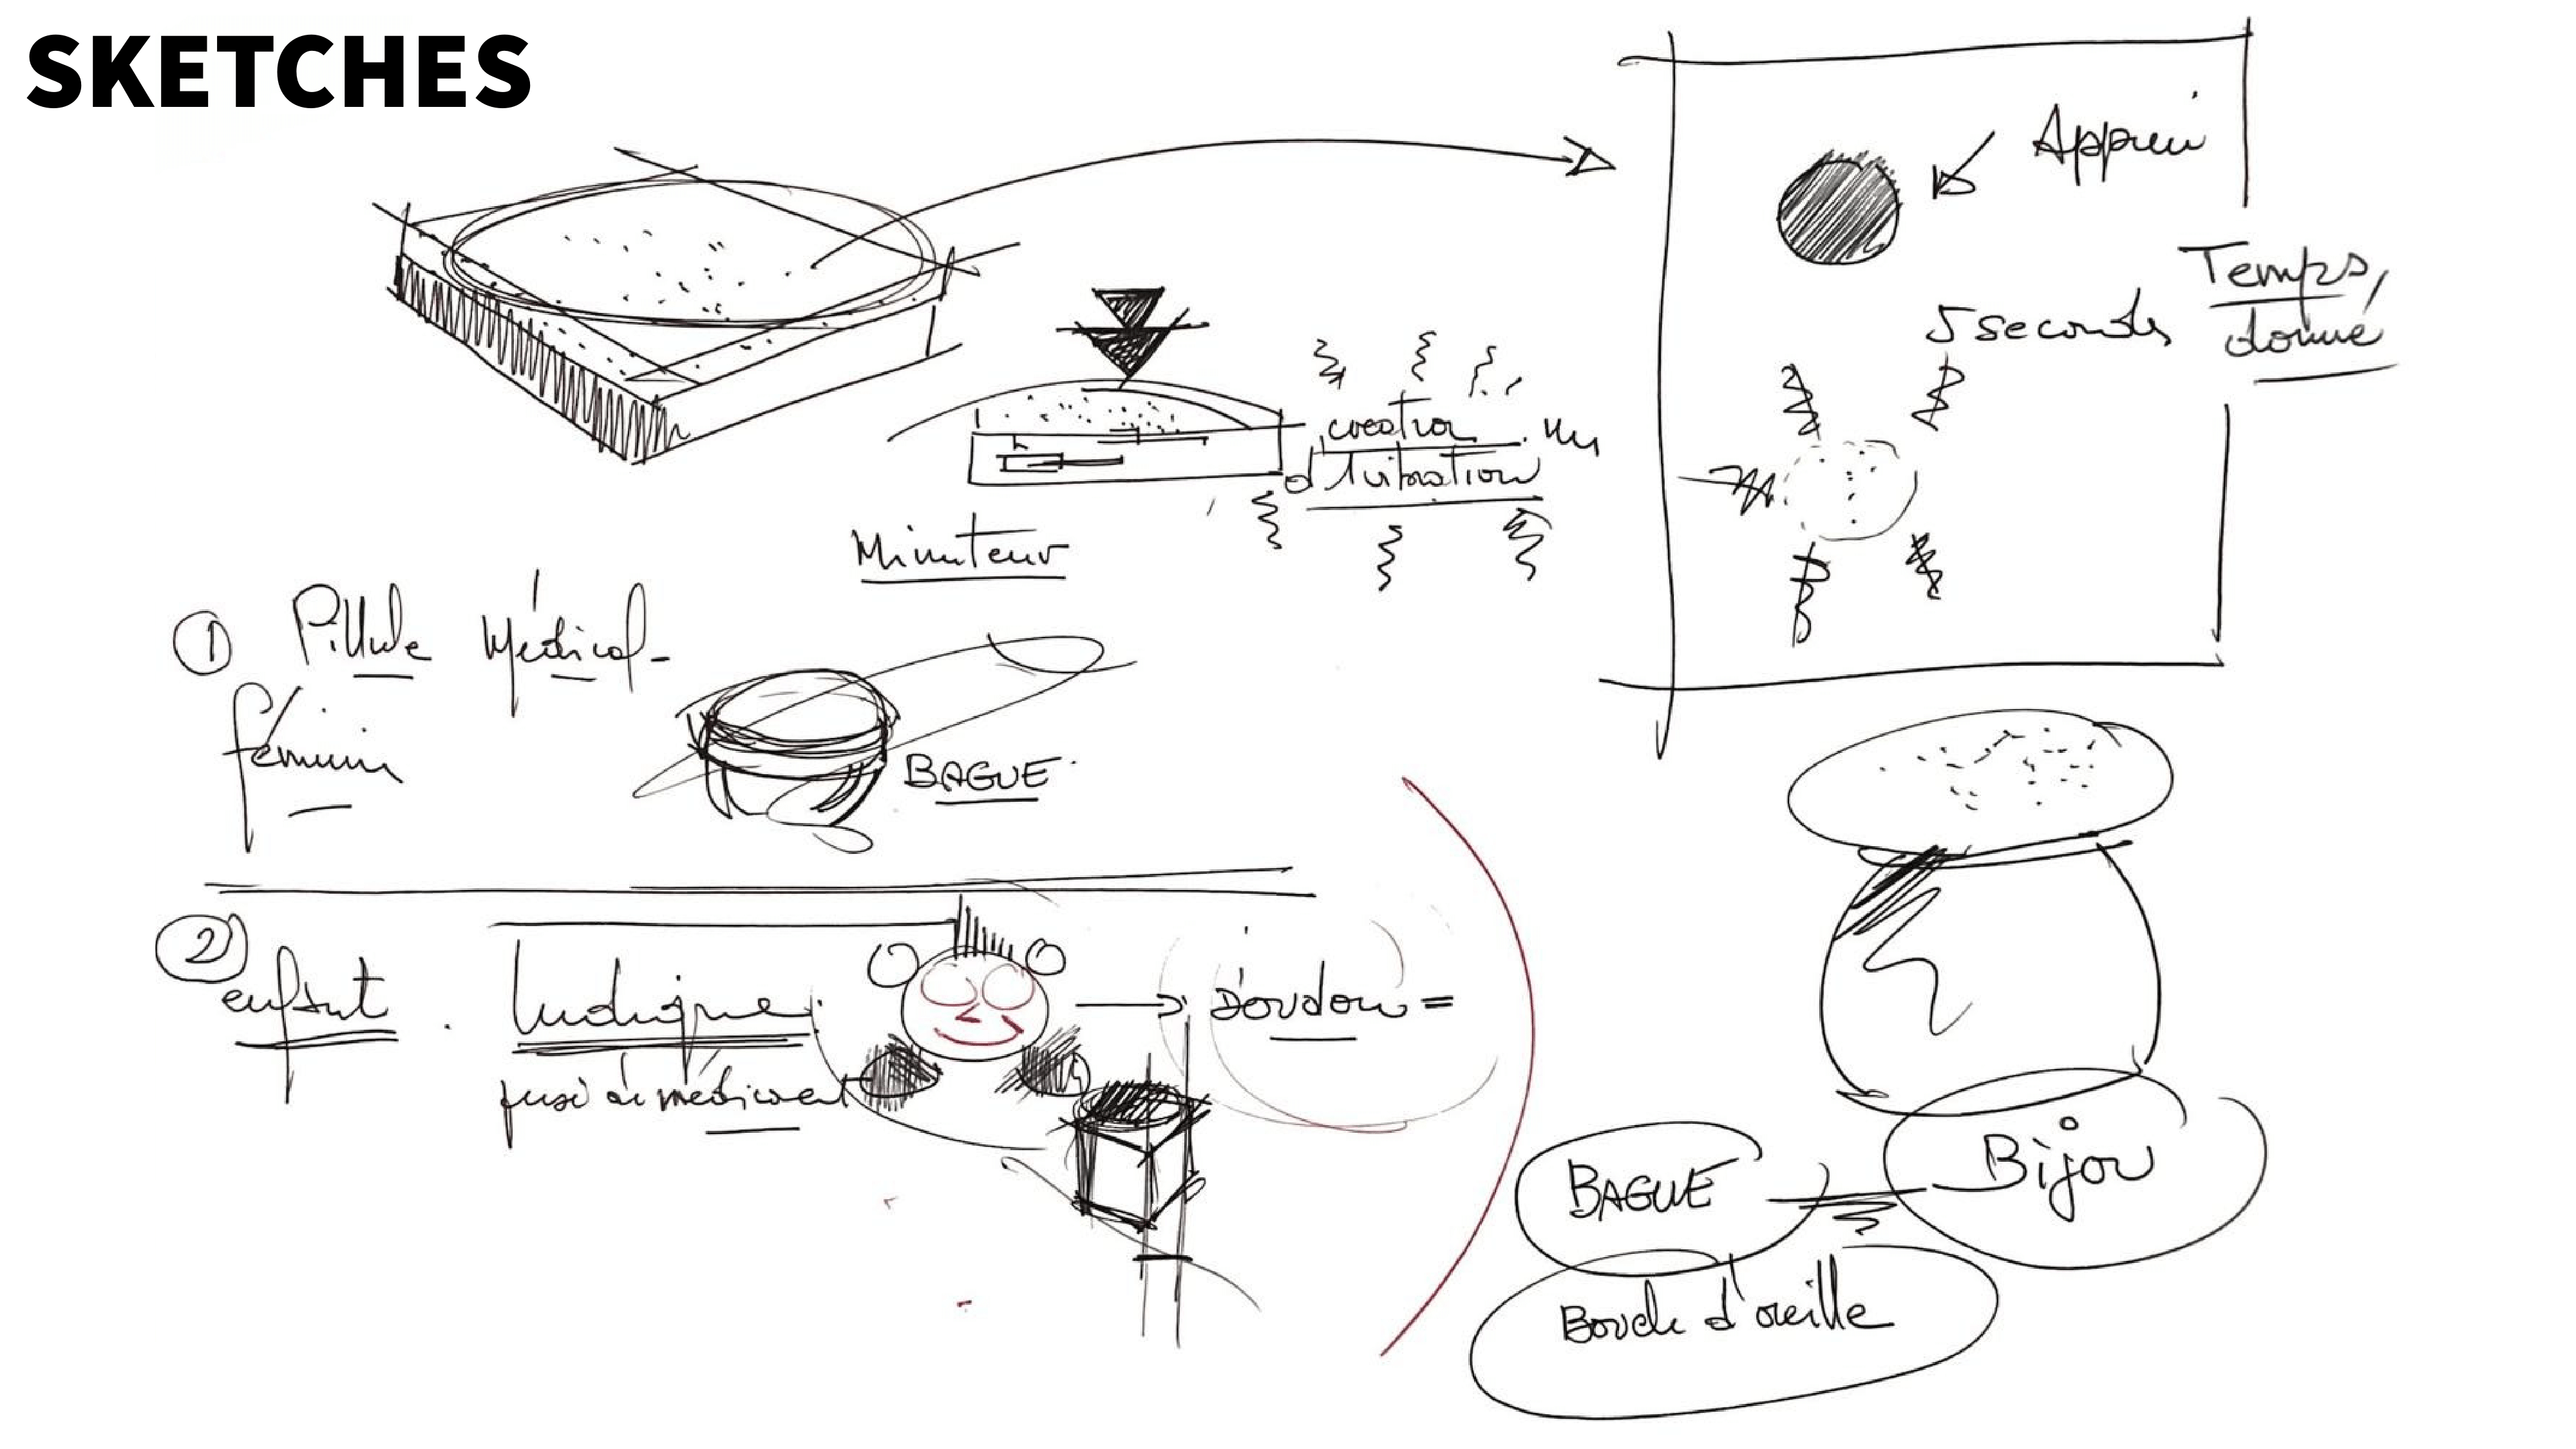 SKETCHES
Appui
Temps,
donné
5 secondes
création
d'vibration
Minuteur
① Pillule Médical-
féminin
BAGUE
② enfant . ludique
de médicament
Doudou =
BAGUE
Bijou
Boucle d'oreille